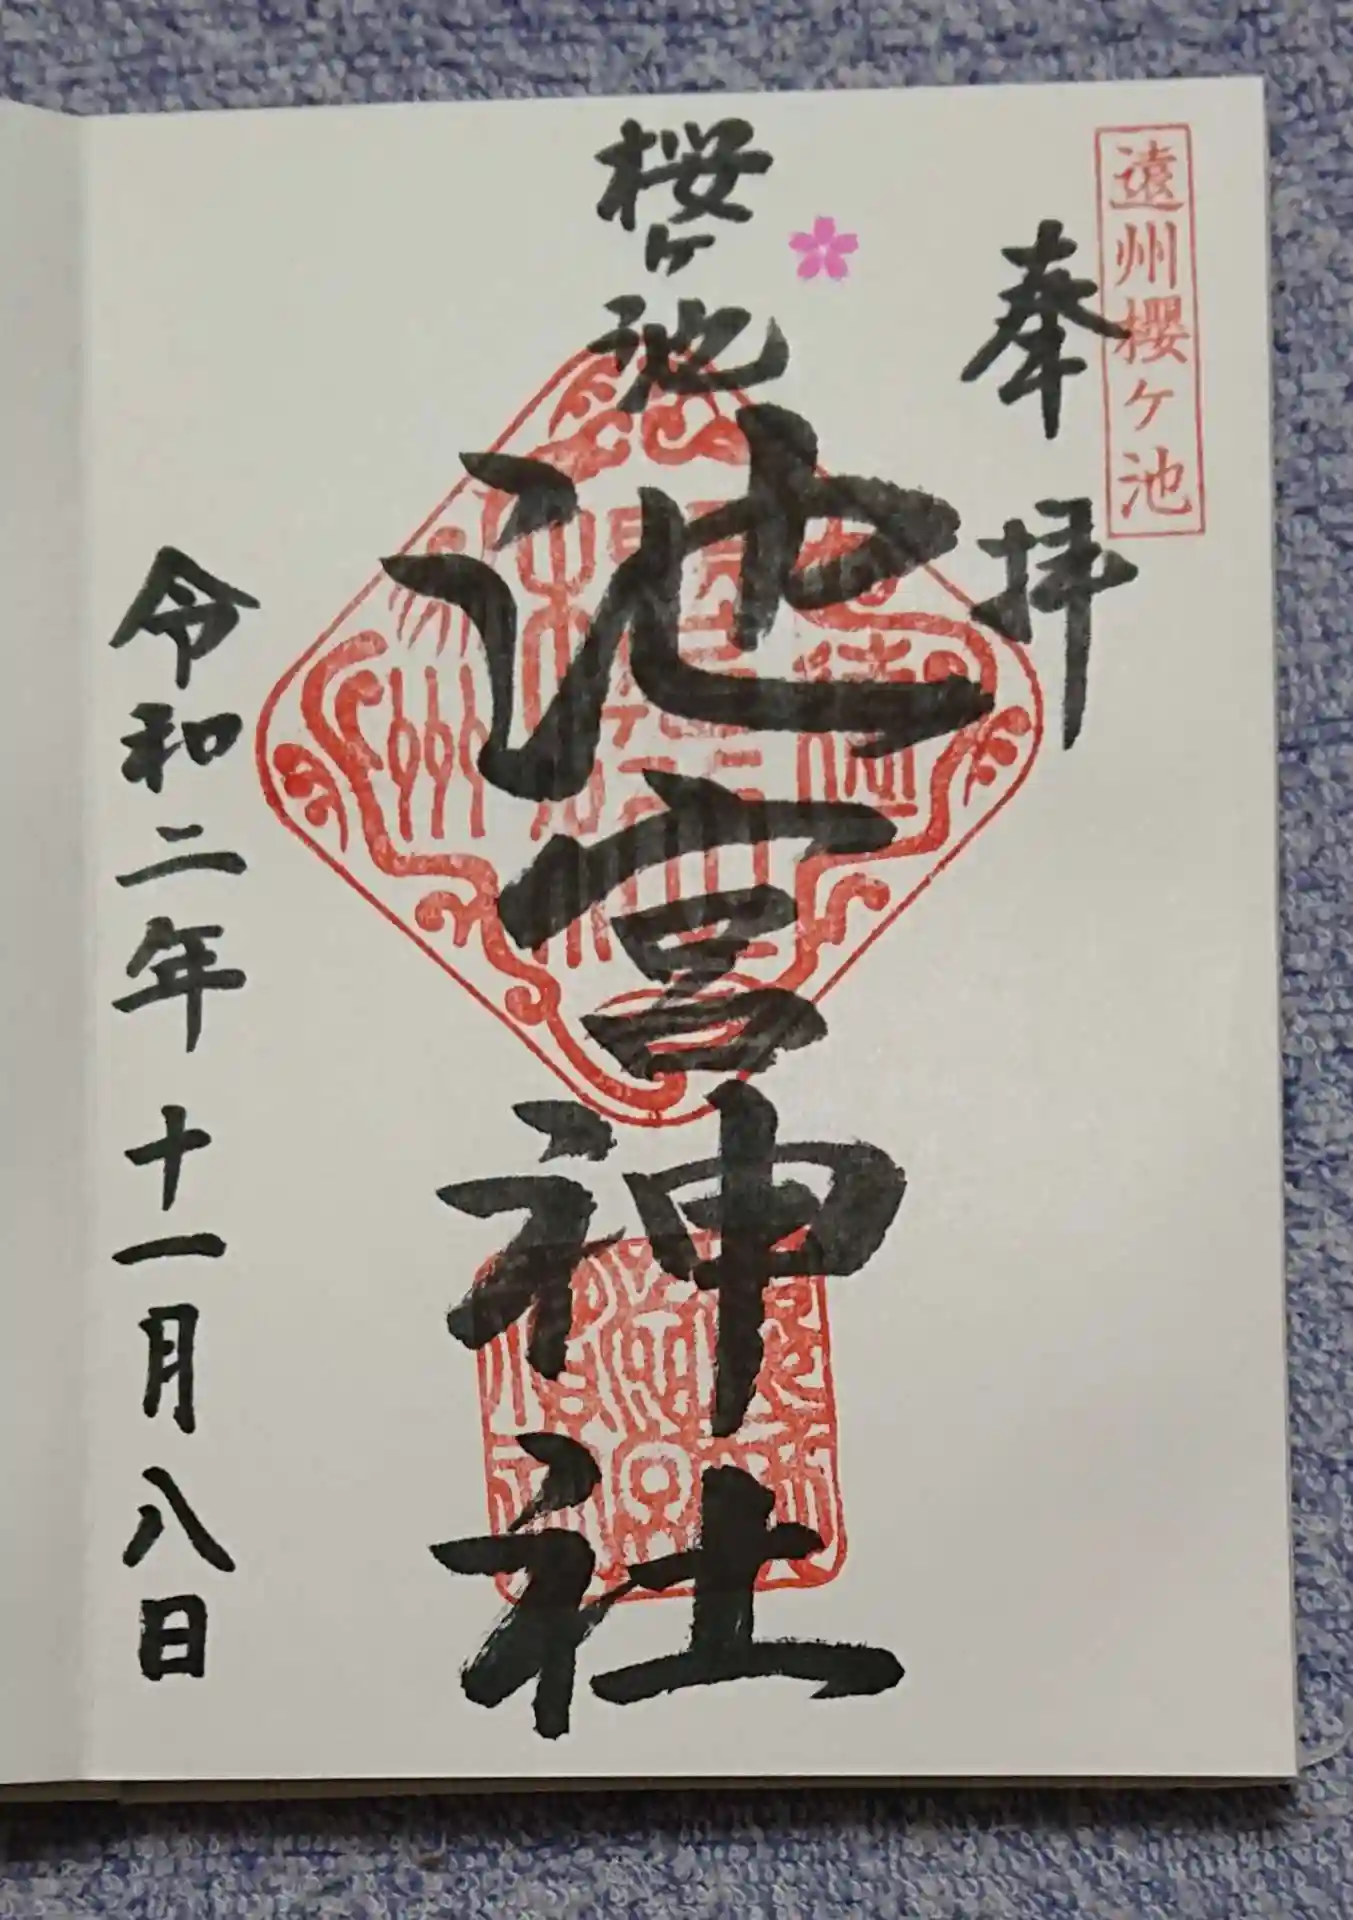 遠州櫻ヶ池
奉拝
桜ヶ池
池宮神社
令和二年十一月八日